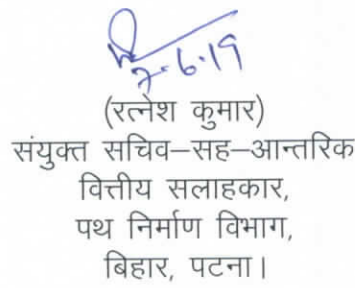 7.6.19
(रत्नेश कुमार)
संयुक्त सचिव–सह–आन्तरिक
वित्तीय सलाहकार,
पथ निर्माण विभाग,
बिहार, पटना।